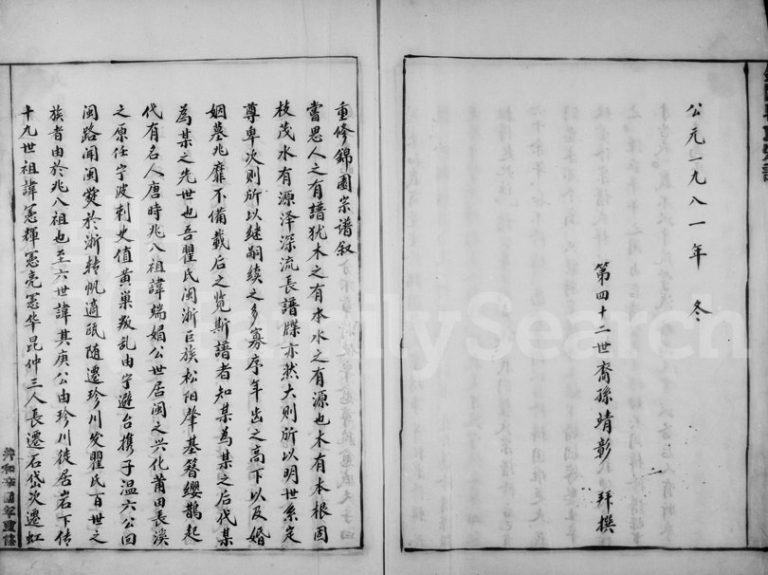 公元一九八一年 冬
第四十二世裔孫靖彰 拜撰
重修錦園宗谱叙
嘗思人之有譜犹木之有本水之有源也木有本根固
枝茂水有源泽深流長譜牒亦然大則所以明世系定
尊卑次則所以继嗣续之多寡序年齿之高下以及婚
姻墓兆靡不備载后之览斯譜者知某為某之后代某
為某之先世也吾瞿氏闽浙巨族松阳肇基簪纓鵲起
代有名人唐時兆八祖諱端娟公世居闽之兴化莆田長溪
之原任宁波刺史值黄巢叛乱由宁避台携子温六公回
闽路闹闽爱於浙转帆適瓯随遷珍川癸瞿氏百世之
族者由於兆八祖也至六世諱其庚公由珍川徙居岩下传
十九世祖諱憲輝憲亮憲华昆仲三人長遷石岱次遷虹
FamilySearch